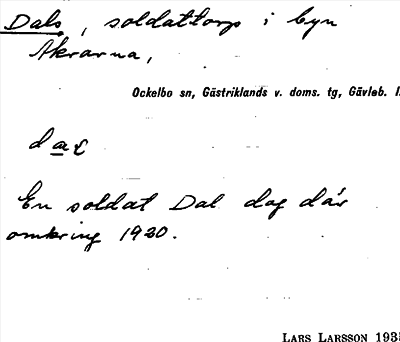 Dals, soldattorp i byn
Åkrarna,
Ockelbo sn, Gästriklands v. doms. tg, Gävleb. l.
En soldat Dal dog där
omkring 1920.
LARS LARSSON 193